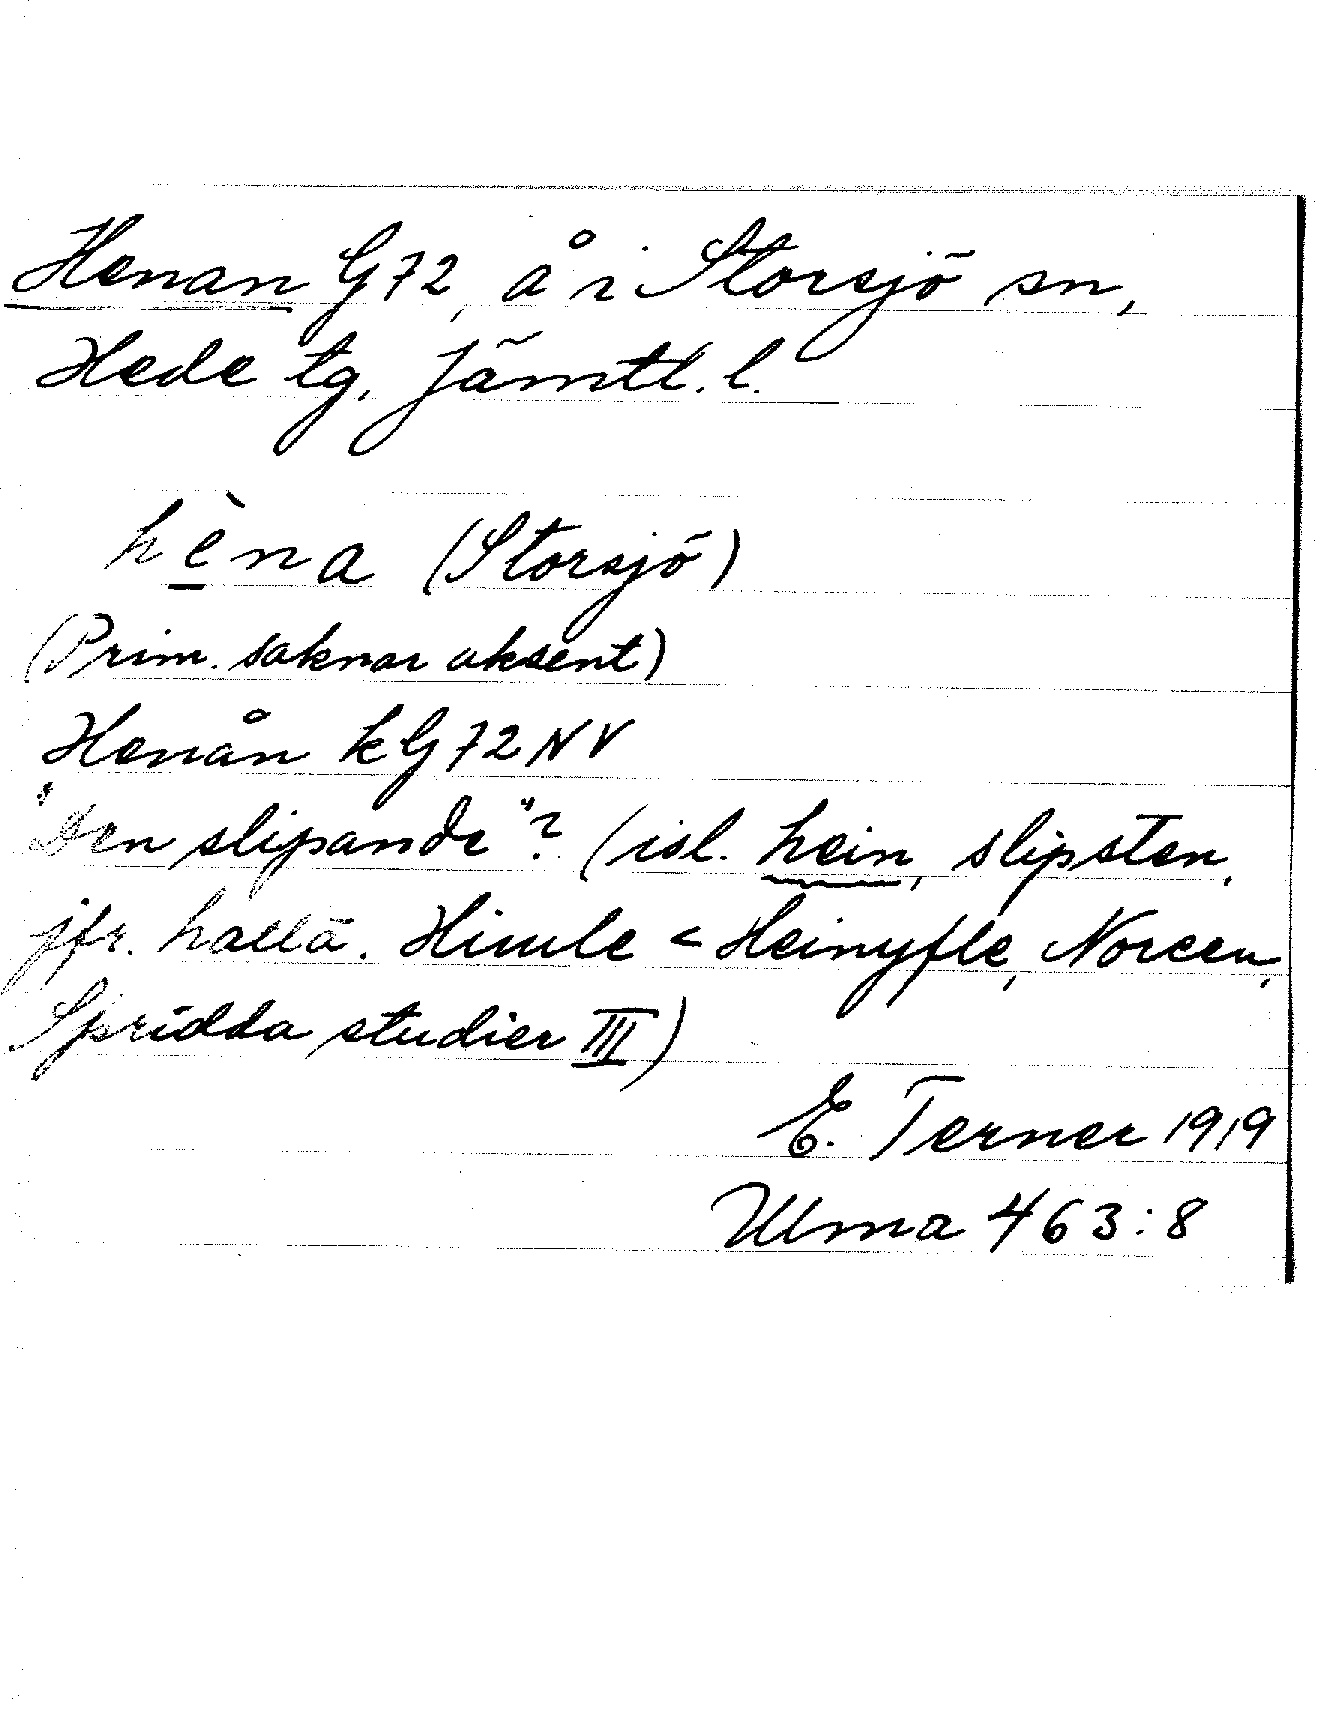 Henan G72, å i Storsjö sn,
Hede tg. Jämtl. l.
hèna (Storsjö)
(Prim. saknar aksent)
Henån kG72NV
"Den slipande"? (isl. hein, slipsten,
jfr. hallä. Himle < Heinyfle, Noreen,
Spridda studier III)
E. Terner 1919
Ulma 463:8